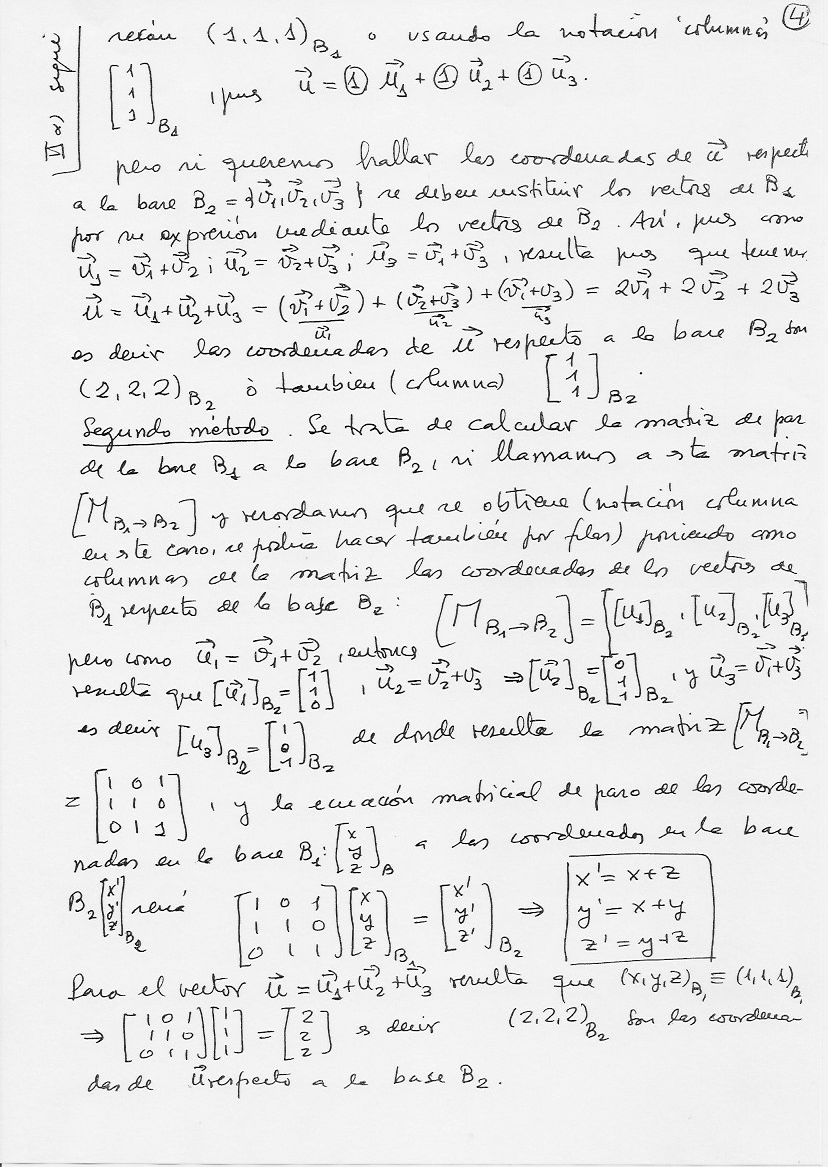 ④
VI α) sigue
serán (1,1,1)_B₁ o usando la notación 'columnas'
[1 1 1]_B₁, pues u⃗ = ① u⃗₁ + ① u⃗₂ + ① u⃗₃.
pero si queremos hallar las coordenadas de u⃗ respecto
a la base B₂ = {v⃗₁, v⃗₂, v⃗₃} se deben sustituir los vectores de B₁
por su expresión mediante los vectores de B₂. Así, pues como
u⃗₁ = v⃗₁+v⃗₂; u⃗₂ = v⃗₂+v⃗₃; u⃗₃ = v⃗₁+v⃗₃, resulta pues que tenem
u⃗ = u⃗₁+u⃗₂+u⃗₃ = (v⃗₁+v⃗₂) + (v⃗₂+v⃗₃) + (v⃗₁+v₃) = 2v⃗₁ + 2v⃗₂ + 2v⃗₃
u⃗₁ u⃗₂ u⃗₃
es decir las coordenadas de u⃗ respecto a la base B₂ son
(2,2,2)_B₂ ò tambien (columna) [1 1 1]_B₂.
Segundo método. Se trata de calcular la matriz de paso
de la base B₁ a la base B₂, si llamamos a esta matriz
[M_B₁→B₂] y recordamos que se obtiene (notación columna
en este caso, se podría hacer también por filas) poniendo como
columnas de la matriz las coordenadas de los vectores de
B₁ respecto de la base B₂: [M_B₁→B₂] = [[u₁]_B₂, [u₂]_B₂, [u₃]_B₂]
pero como u⃗₁ = v⃗₁+v⃗₂, entonces
resulta que [u⃗₁]_B₂ = [1 1 0], u⃗₂ = v⃗₂+v₃ ⇒ [u⃗₂]_B₂ = [0 1 1]_B₂, y u⃗₃ = v⃗₁+v⃗₃
es decir [u₃]_B₂ = [1 0 1]_B₂ de donde resulta la matriz [M_B₁→B₂]
= [1 0 1 / 1 1 0 / 0 1 1], y la ecuación matricial de paso de las coorde-
nadas en la base B₁: [x y z]_B a las coordenadas en la base
B₂ [x' y' z']_B₂ será [1 0 1 / 1 1 0 / 0 1 1] [x y z]_B₁ = [x' y' z']_B₂ ⇒ x' = x+z
y' = x+y
z' = y+z
Para el vector u⃗ = u⃗₁+u⃗₂+u⃗₃ resulta que (x,y,z)_B₁ ≡ (1,1,1)_B₁
⇒ [1 0 1 / 1 1 0 / 0 1 1] [1 1 1] = [2 2 2] es decir (2,2,2)_B₂ son las coordena
das de u⃗ respecto a la base B₂.